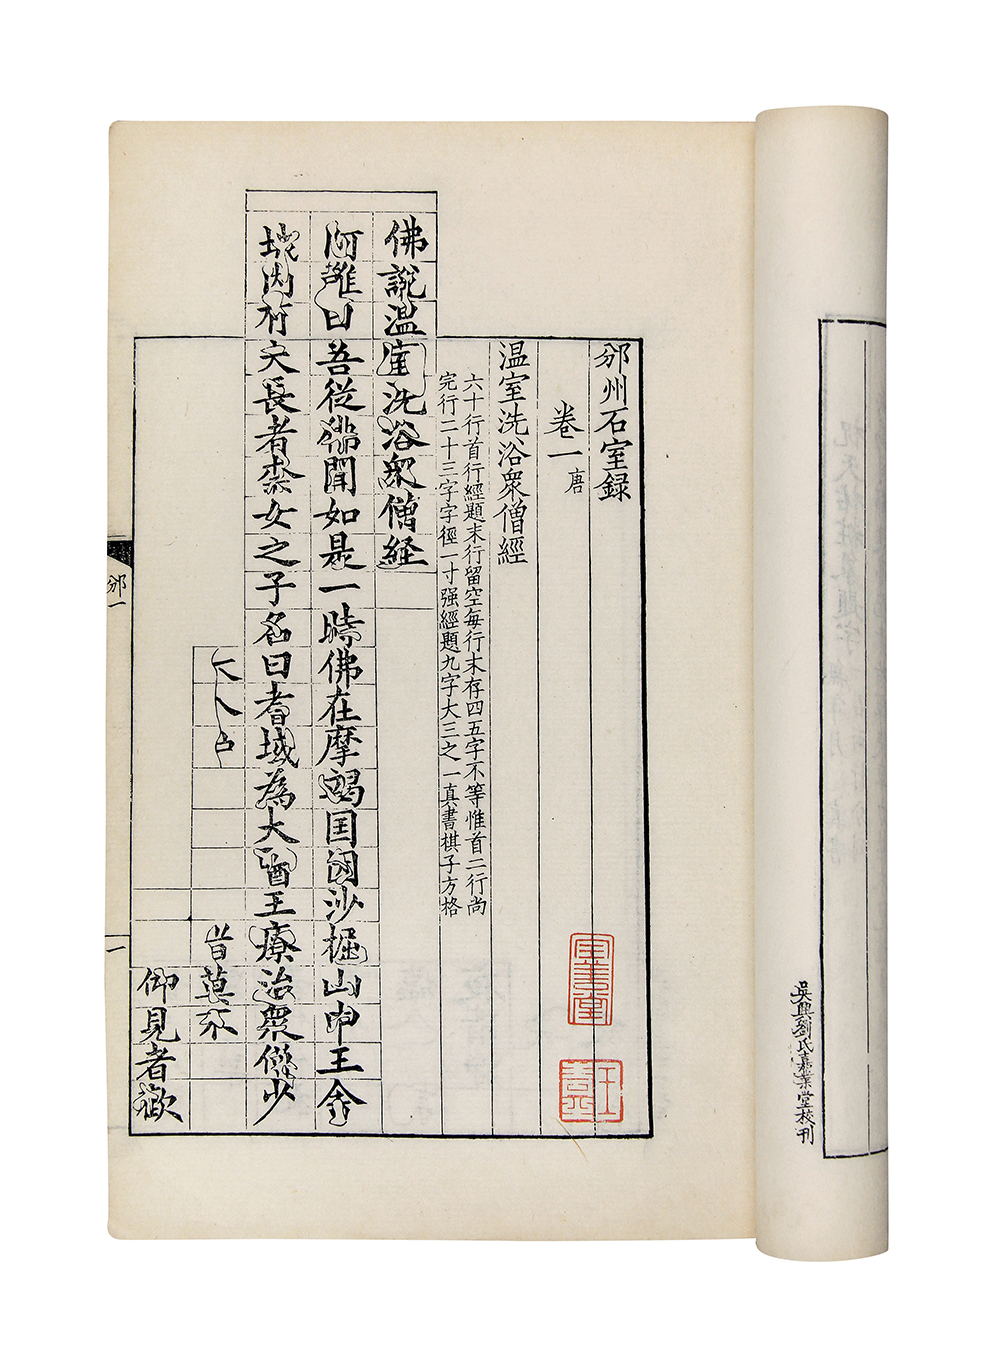 吳興劉氏嘉業堂校刊
邠州石室録
卷一 唐
温室洗浴衆僧經
六十行首行經題末行留空每行末存四五字不等惟首二行尚
完行二十三字字徑一寸强經題九字大三之一真書棋子方格
佛說温室洗浴衆僧経
阿難曰吾從佛聞如是一時佛在摩竭国因沙掘山中王舍
城内有大長者柰女之子名曰耆域為大醫王療治衆僧少
大人
皆莫不
仰見者歡
邠一
一